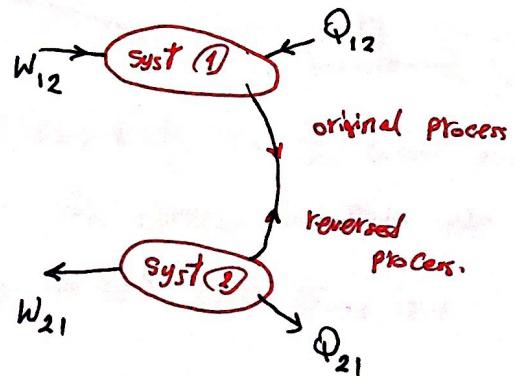 W12
syst ①
Q12
original process
reversed
process.
syst ②
W21
Q21